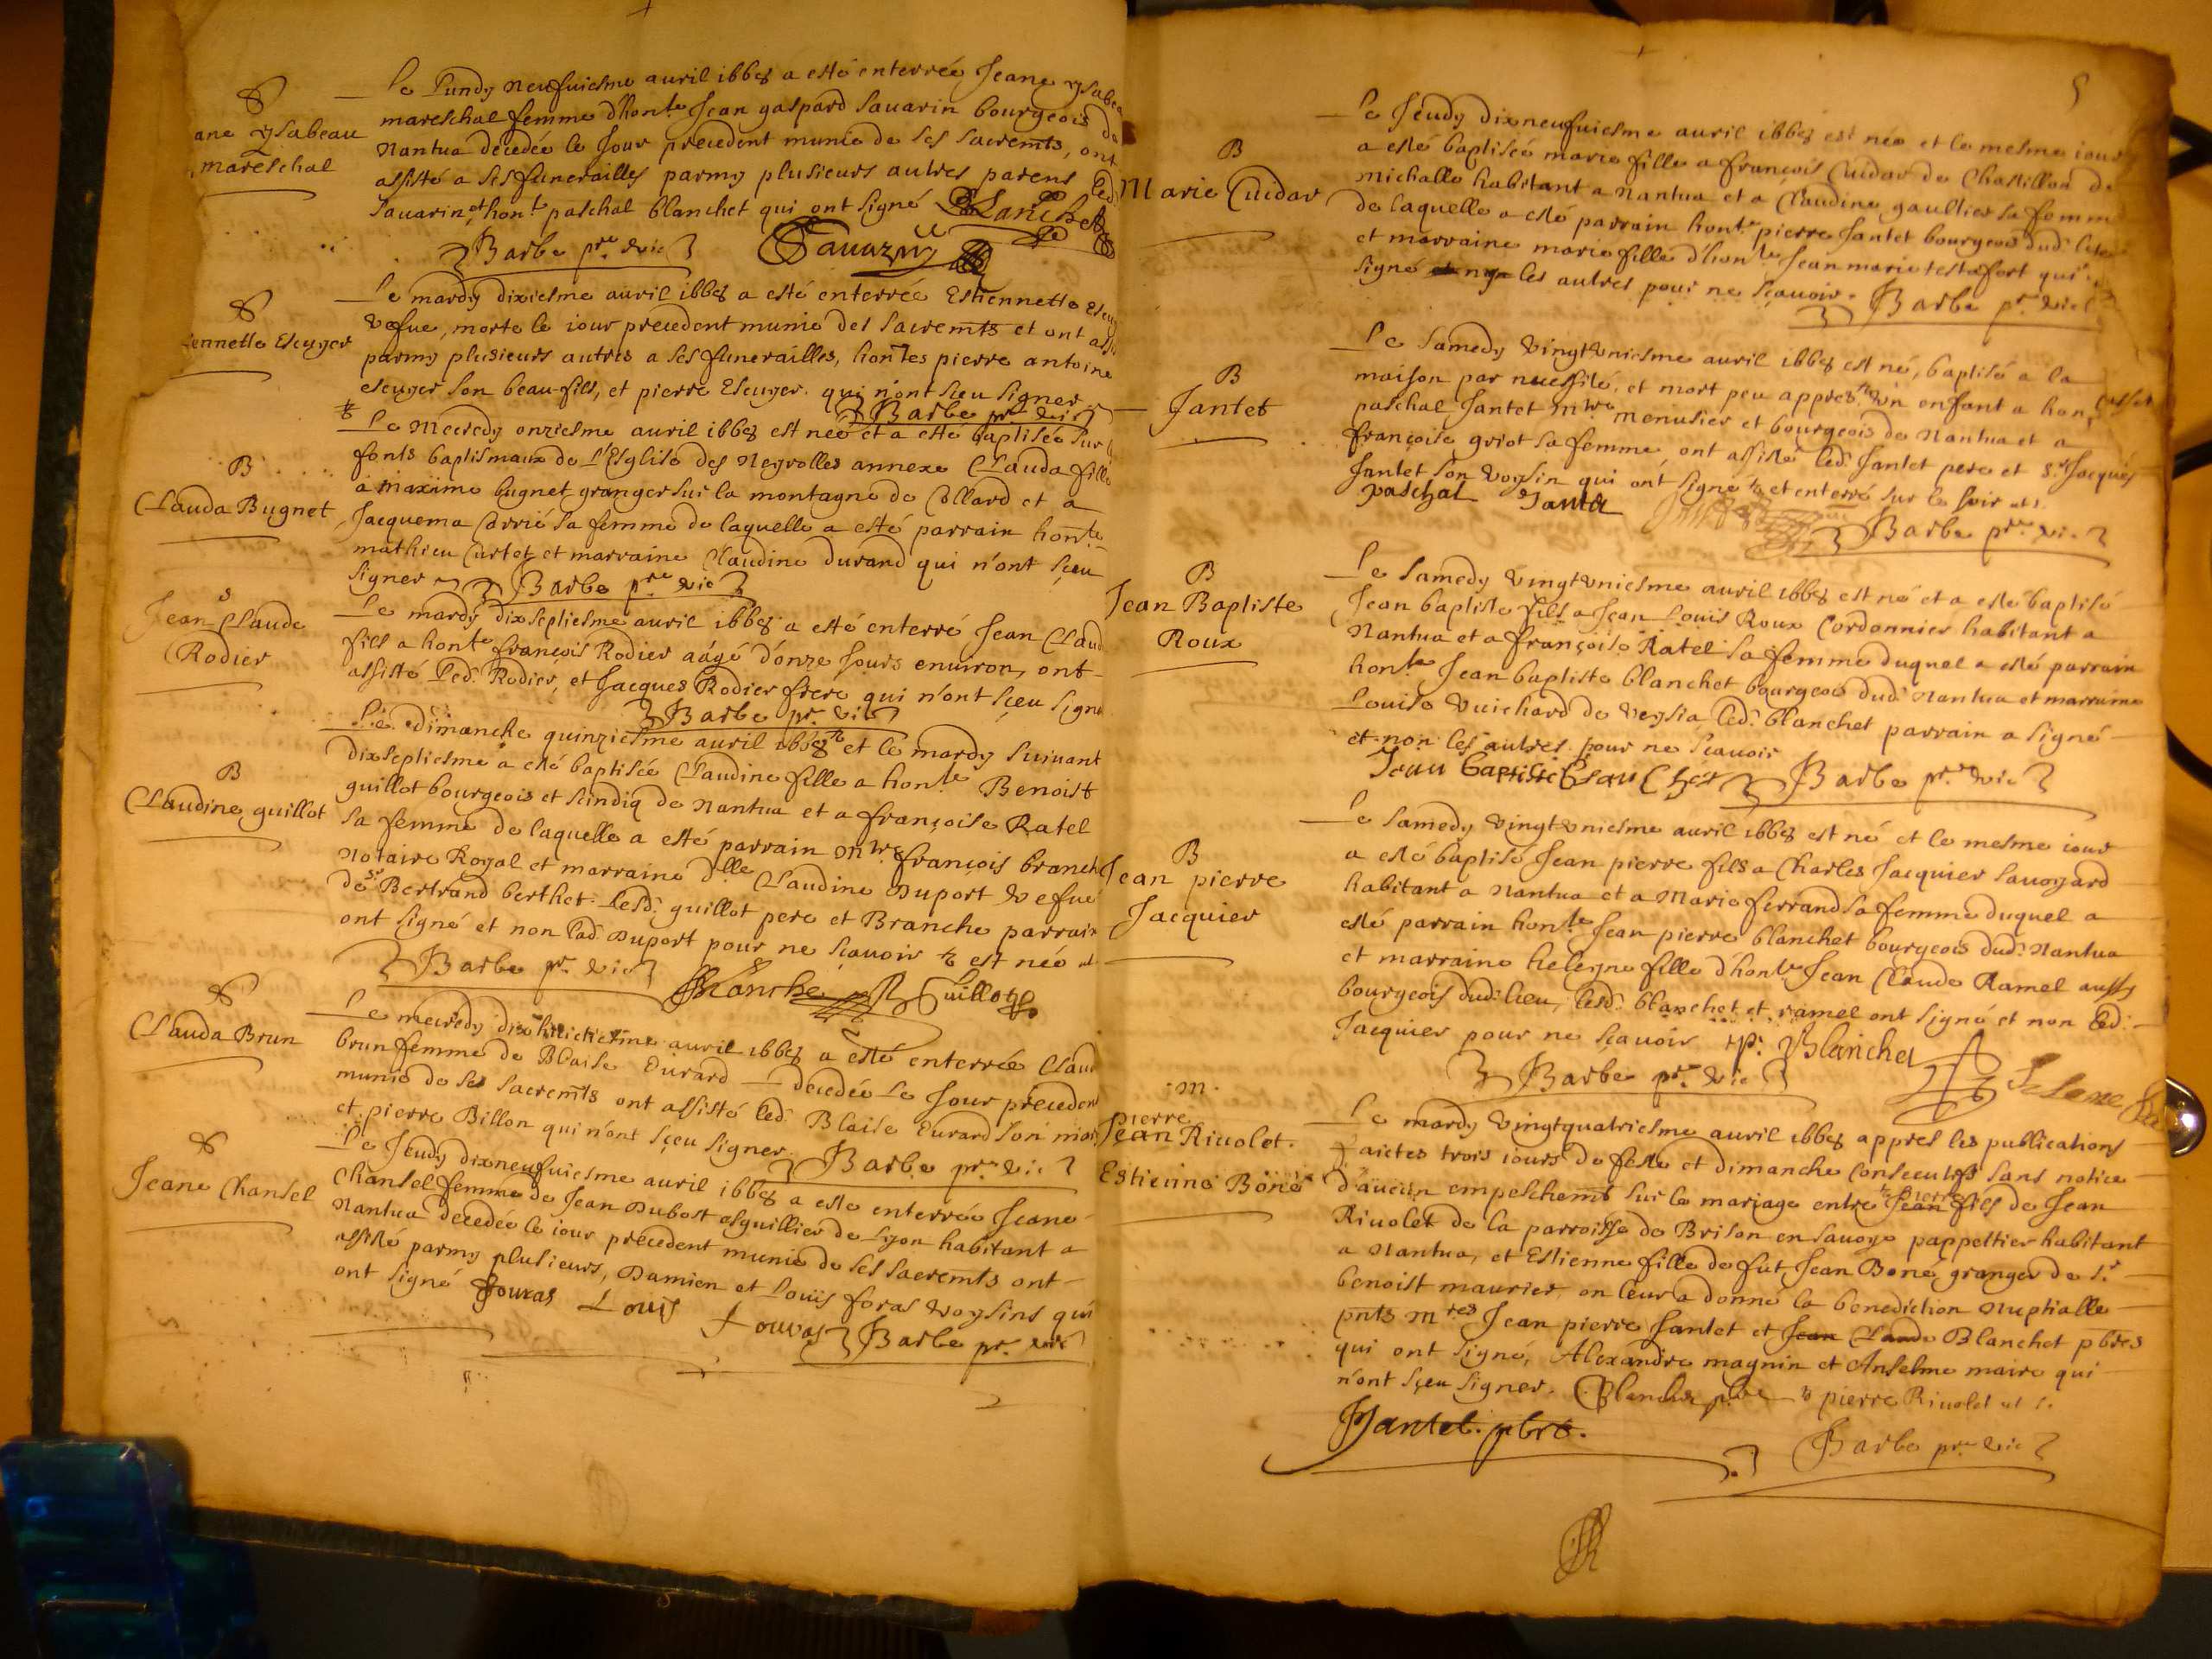 S
ane ysabeau
mareschal
Le Lundy neufuiesme auril 1668 a esté enterrée Jeane ysabeau
mareschal femme dhon.te Jean gaspard sauarin bourgeois de
Nantua decedée le Jour precedent munie de ses sacremts, ont
assisté a ses funerailles parmy plusieurs autres parens led
sauarin et hon.t paschal blanchet qui ont signé Blanchet
Barbe pr.e vic Sauarin
S
iennette Escuyer
Le mardy dixiesme auril 1668 a esté enterrée Estiennette Escu
vefue, morte le iour precedent munie des sacremts et ont assi
parmy plusieurs autres a ses funerailles, hontes pierre antoine
escuyer son beau-fils, et pierre Escuyer. qui n'ont sçeu signer
Barbe pr.e vic
B
Clauda Bugnet
Le Mecredy onziesme auril 1668 est née et a esté baptisée sur l
fonts baptismaux de L'Esglise des Neyrolles annexe Clauda fille
a maxime bugnet granger sur la montagne de Collard et a
Jacquema Carrié sa femme de laquelle a esté parrain hon.te
mathieu Curtet et marraine Claudine durand qui n'ont sçeu
signer Barbe pr.e vic
S
Jean Claude
Rodier
Le mardy dixseptiesme auril 1668 a esté enterré Jean Claud
fils a hon.te françois Rodier aágé d'onze Jours enuiron, ont
assisté Led. Rodier, et Jacques Rodier frere qui n'ont sçeu signe
Barbe pr.e vic
B
Claudine guillot
Le dimanche quinziesme auril 1668 et le mardy suiuant
dixseptiesme a esté baptisée Claudine fille a hon.te Benoist
guillot bourgeois et scindiq de Nantua et a françoise Ratel
sa femme de laquelle a esté parrain Mtre françois branch
Notaire Royal et marraine dlle Claudine Duport vefue
de Sr Bertrand berthet. Lesd. guillot pere et Branche parrain
ont signé et non lad. Duport pour ne sçauoir est née
Barbe pr.e vic Branche Guillot
S
Clauda Brun
Le mecredy dixhuictiesme auril 1668 a esté enterrée Claud
brun femme de Blaise Eurard — decedée Le Jour precedent
munie de ses sacremts ont assisté led. Blaise Eurard son mary
et pierre Billon qui n'ont sçeu signer. Barbe pr.e vic
S
Jeane Chansel
Le Jeudy dixneufuiesme auril 1668 a esté enterrée Jeane
Chansel femme de Jean Dubost esguillier de Lyon habitant a
Nantua decedée le iour precedent munie de ses sacremts ont
assisté parmy plusieurs, Damien et Louïs foras voysins qui
ont signé fouras Louis fouras Barbe pr.e vic
5
B
Marie Cuidar
Le Jeudy dixneufuiesme auril 1668 est née et le mesme iour
a esté baptisée marie fille a françois Cuidar de Chastillon de
michaille habitant a Nantua et a Claudine gaultier sa femme
de laquelle a esté parrain hon.te pierre Jantet bourgeois dud. lieu
et marraine marie fille d'hon.te Jean marie testafort qui
signé les autres pour ne sçauoir. Barbe pr.e vic
B
Jantet
Le samedy vingtvniesme auril 1668 est né, baptisé a la
maison par necessité, et mort peu appres vn enfant a hon.
paschal Jantet mtre menusier et bourgeois de Nantua et a
françoise griot sa femme, ont assisté led. Jantet pere et s.r Jacques
Jantet son voysin qui ont signé et enterré sur le soir
paschal Jantet
Barbe pr.e vic
B
Jean Baptiste
Roux
Le samedy vingtvniesme auril 1668 est né et a esté baptisé
Jean baptiste fils a Jean Louis Roux Cordonnier habitant a
Nantua et a françoise Ratel sa femme duquel a esté parrain
hon.te Jean baptiste blanchet bourgeois dud. Nantua et marraine
Louise Vuichard de Veysia, led. blanchet parrain a signé
et non les autres pour ne sçauoir
Jean Baptiste Blanchet Barbe pr.e vic
B
Jean pierre
Jacquier
Le samedy vingtvniesme auril 1668 est né et le mesme iour
a esté baptisé Jean pierre fils a Charles Jacquier sauoyard
habitant a Nantua et a Marie ferrand sa femme duquel a
esté parrain hon.te Jean pierre blanchet bourgeois dud. Nantua
et marraine heleyne fille d'hon.te Jean Claude Ramel aussy
bourgeois dud. lieu, lesd. blanchet et ramel ont signé et non led.
Jacquier pour ne sçauoir p. Blanchet
Barbe pr.e vic
m
pierre
Jean Riuolet.
Estienne Boné
Le mardy vingtquatriesme auril 1668 appres les publications
faictes trois iours de feste et dimanche consecutifs sans notice
d'aucun empeschemt sur le mariage entre pierre Jean fils de Jean
Riuolet de la parroisse de Brison en sauoye pappettier habitant
a Nantua, et Estienne fille de fut Jean Boné granger de s.r
benoist maurier, on leur a donné la benediction nuptialle
pnts mres Jean pierre Jantet et Jean Claude Blanchet pbres
qui ont signé, Alexandre magnin et Anselme maire qui
n'ont sçeu signer. Blanchet pbre pierre Riuolet
Jantet. pbre.
Barbe pr.e vic